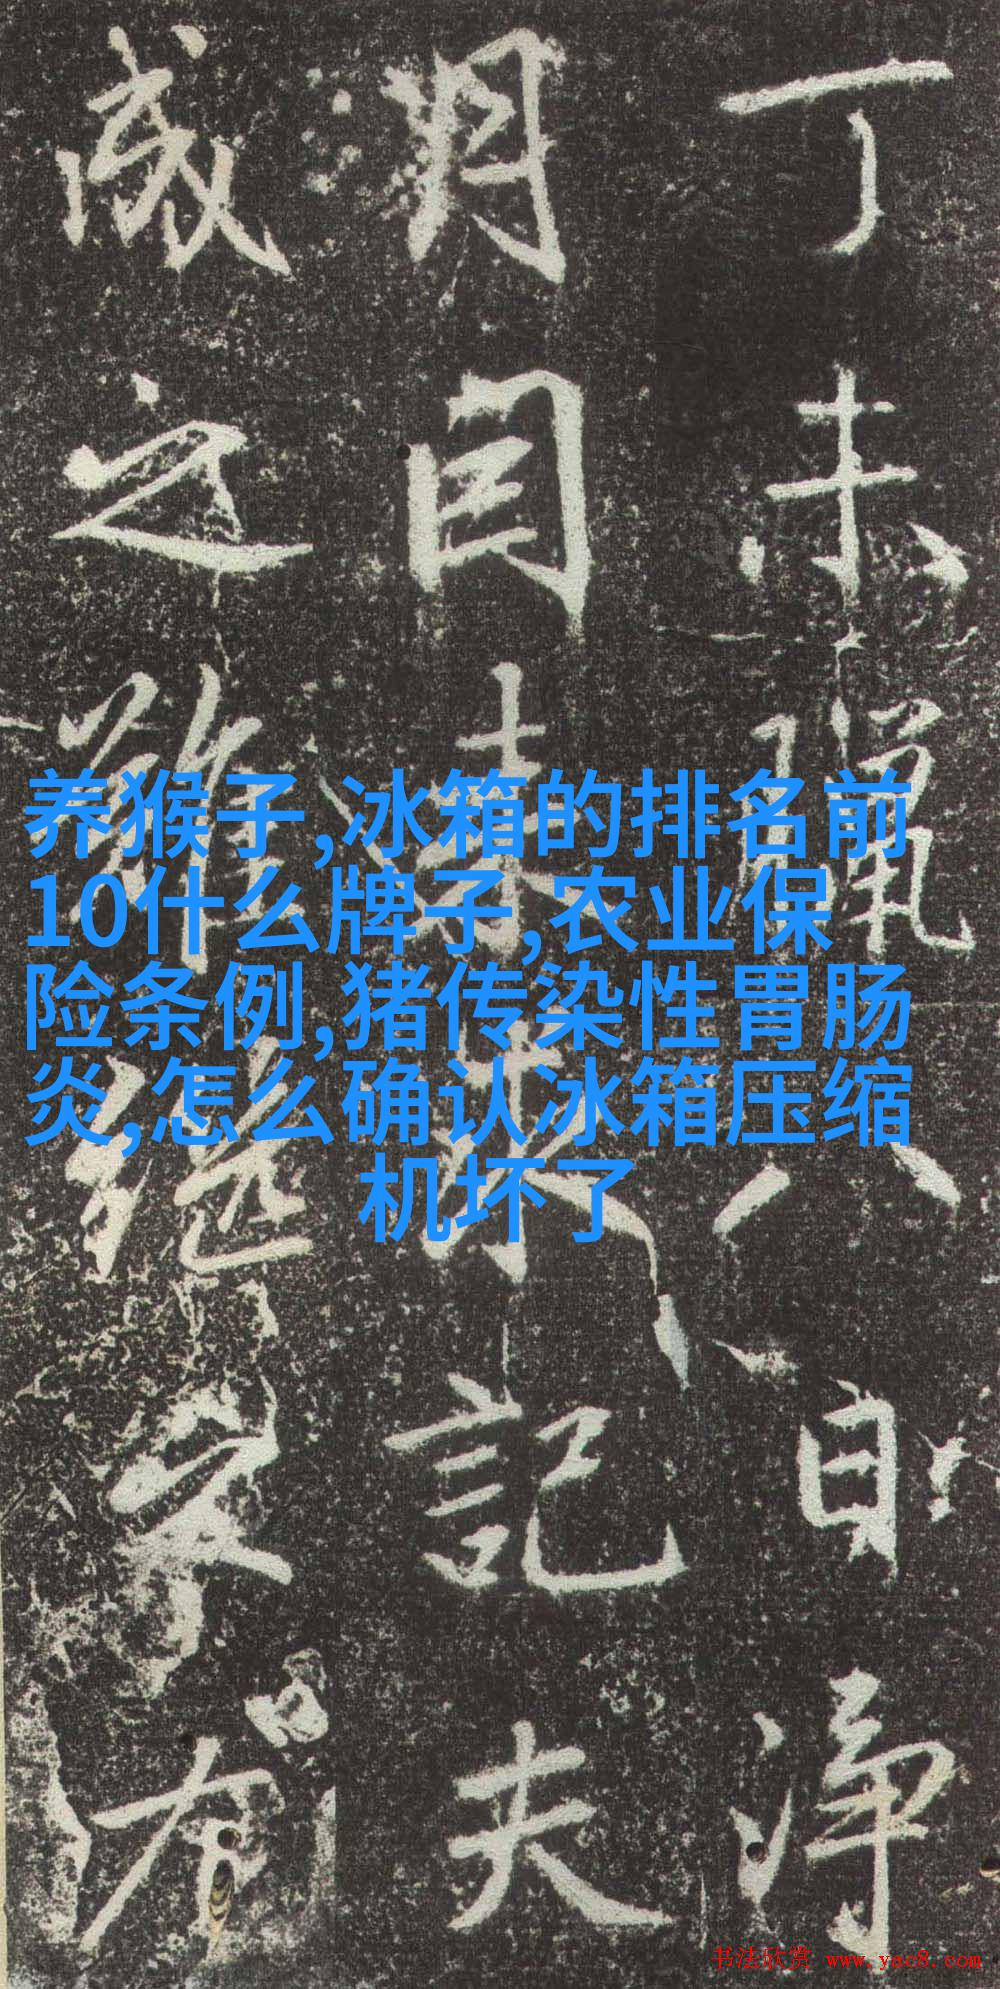 丁未臘八日净
月因来
記夫
成之
继
养猴子,冰箱的排名前
10什么牌子,农业保
险条例,猪传染性胃肠
炎,怎么确认冰箱压缩
机坏了
书法欣赏 www.yac8.com